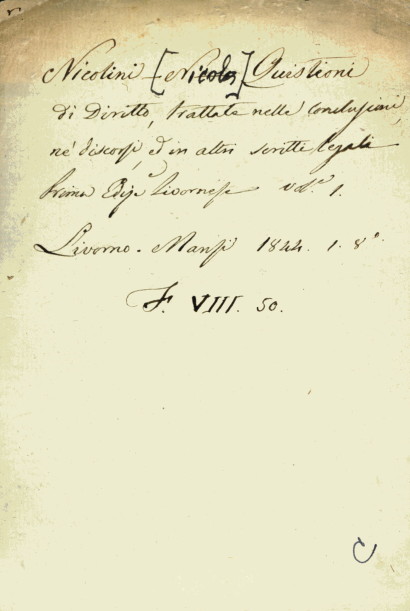 Nicolini [Nicola] Quistioni
di Diritto, trattate nelle conclusioni,
ne' discorsi, ed in altri scritti legali
prima Ediz.e Livornese vol.e 1.
Livorno - Mansi 1844. 1. 8°.
F. VIII. 50.
C